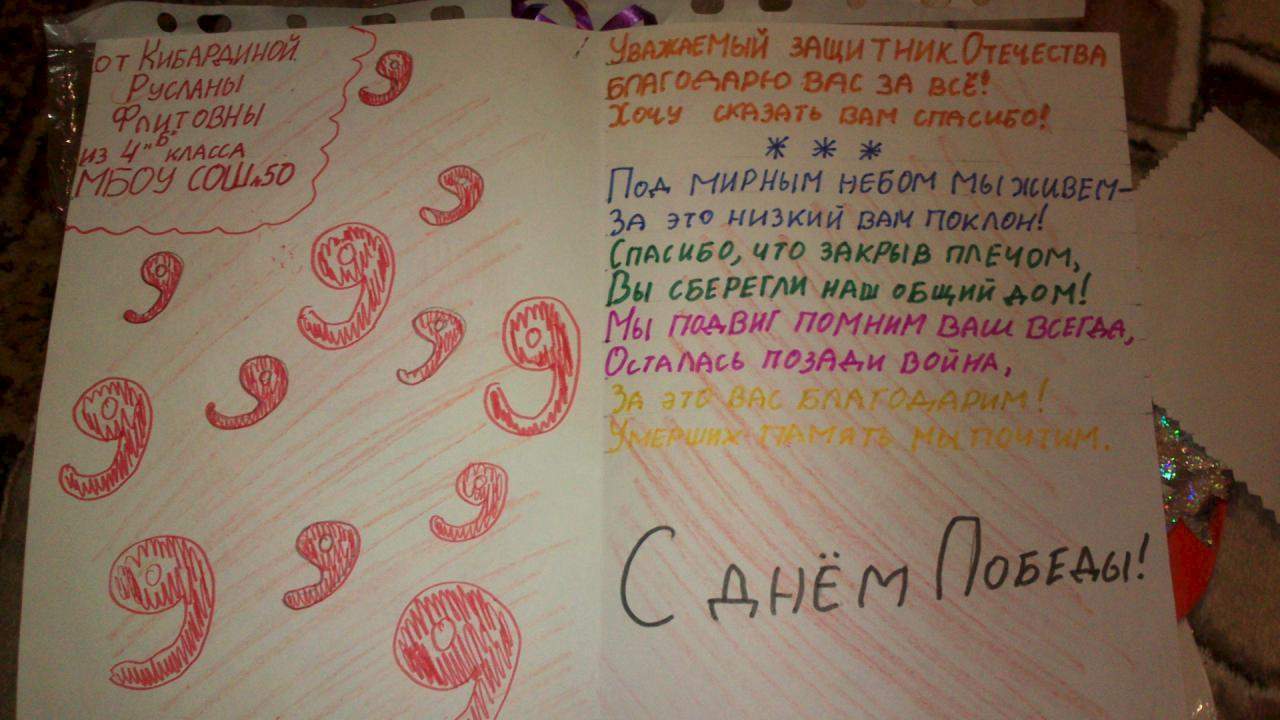 от Кибардиной
Русланы
Флитовны
из 4"в" класса
МБОУ СОШ№50
Уважаемый защитник Отечества
благодарю вас за всё!
Хочу сказать вам спасибо!
* * *
Под мирным небом мы живем-
За это низкий вам поклон!
Спасибо, что закрыв плечом,
Вы сберегли наш общий дом!
Мы подвиг помним ваш всегда,
Осталась позади война,
За это вас благодарим!
Умерших память мы почтим.
С днём Победы!